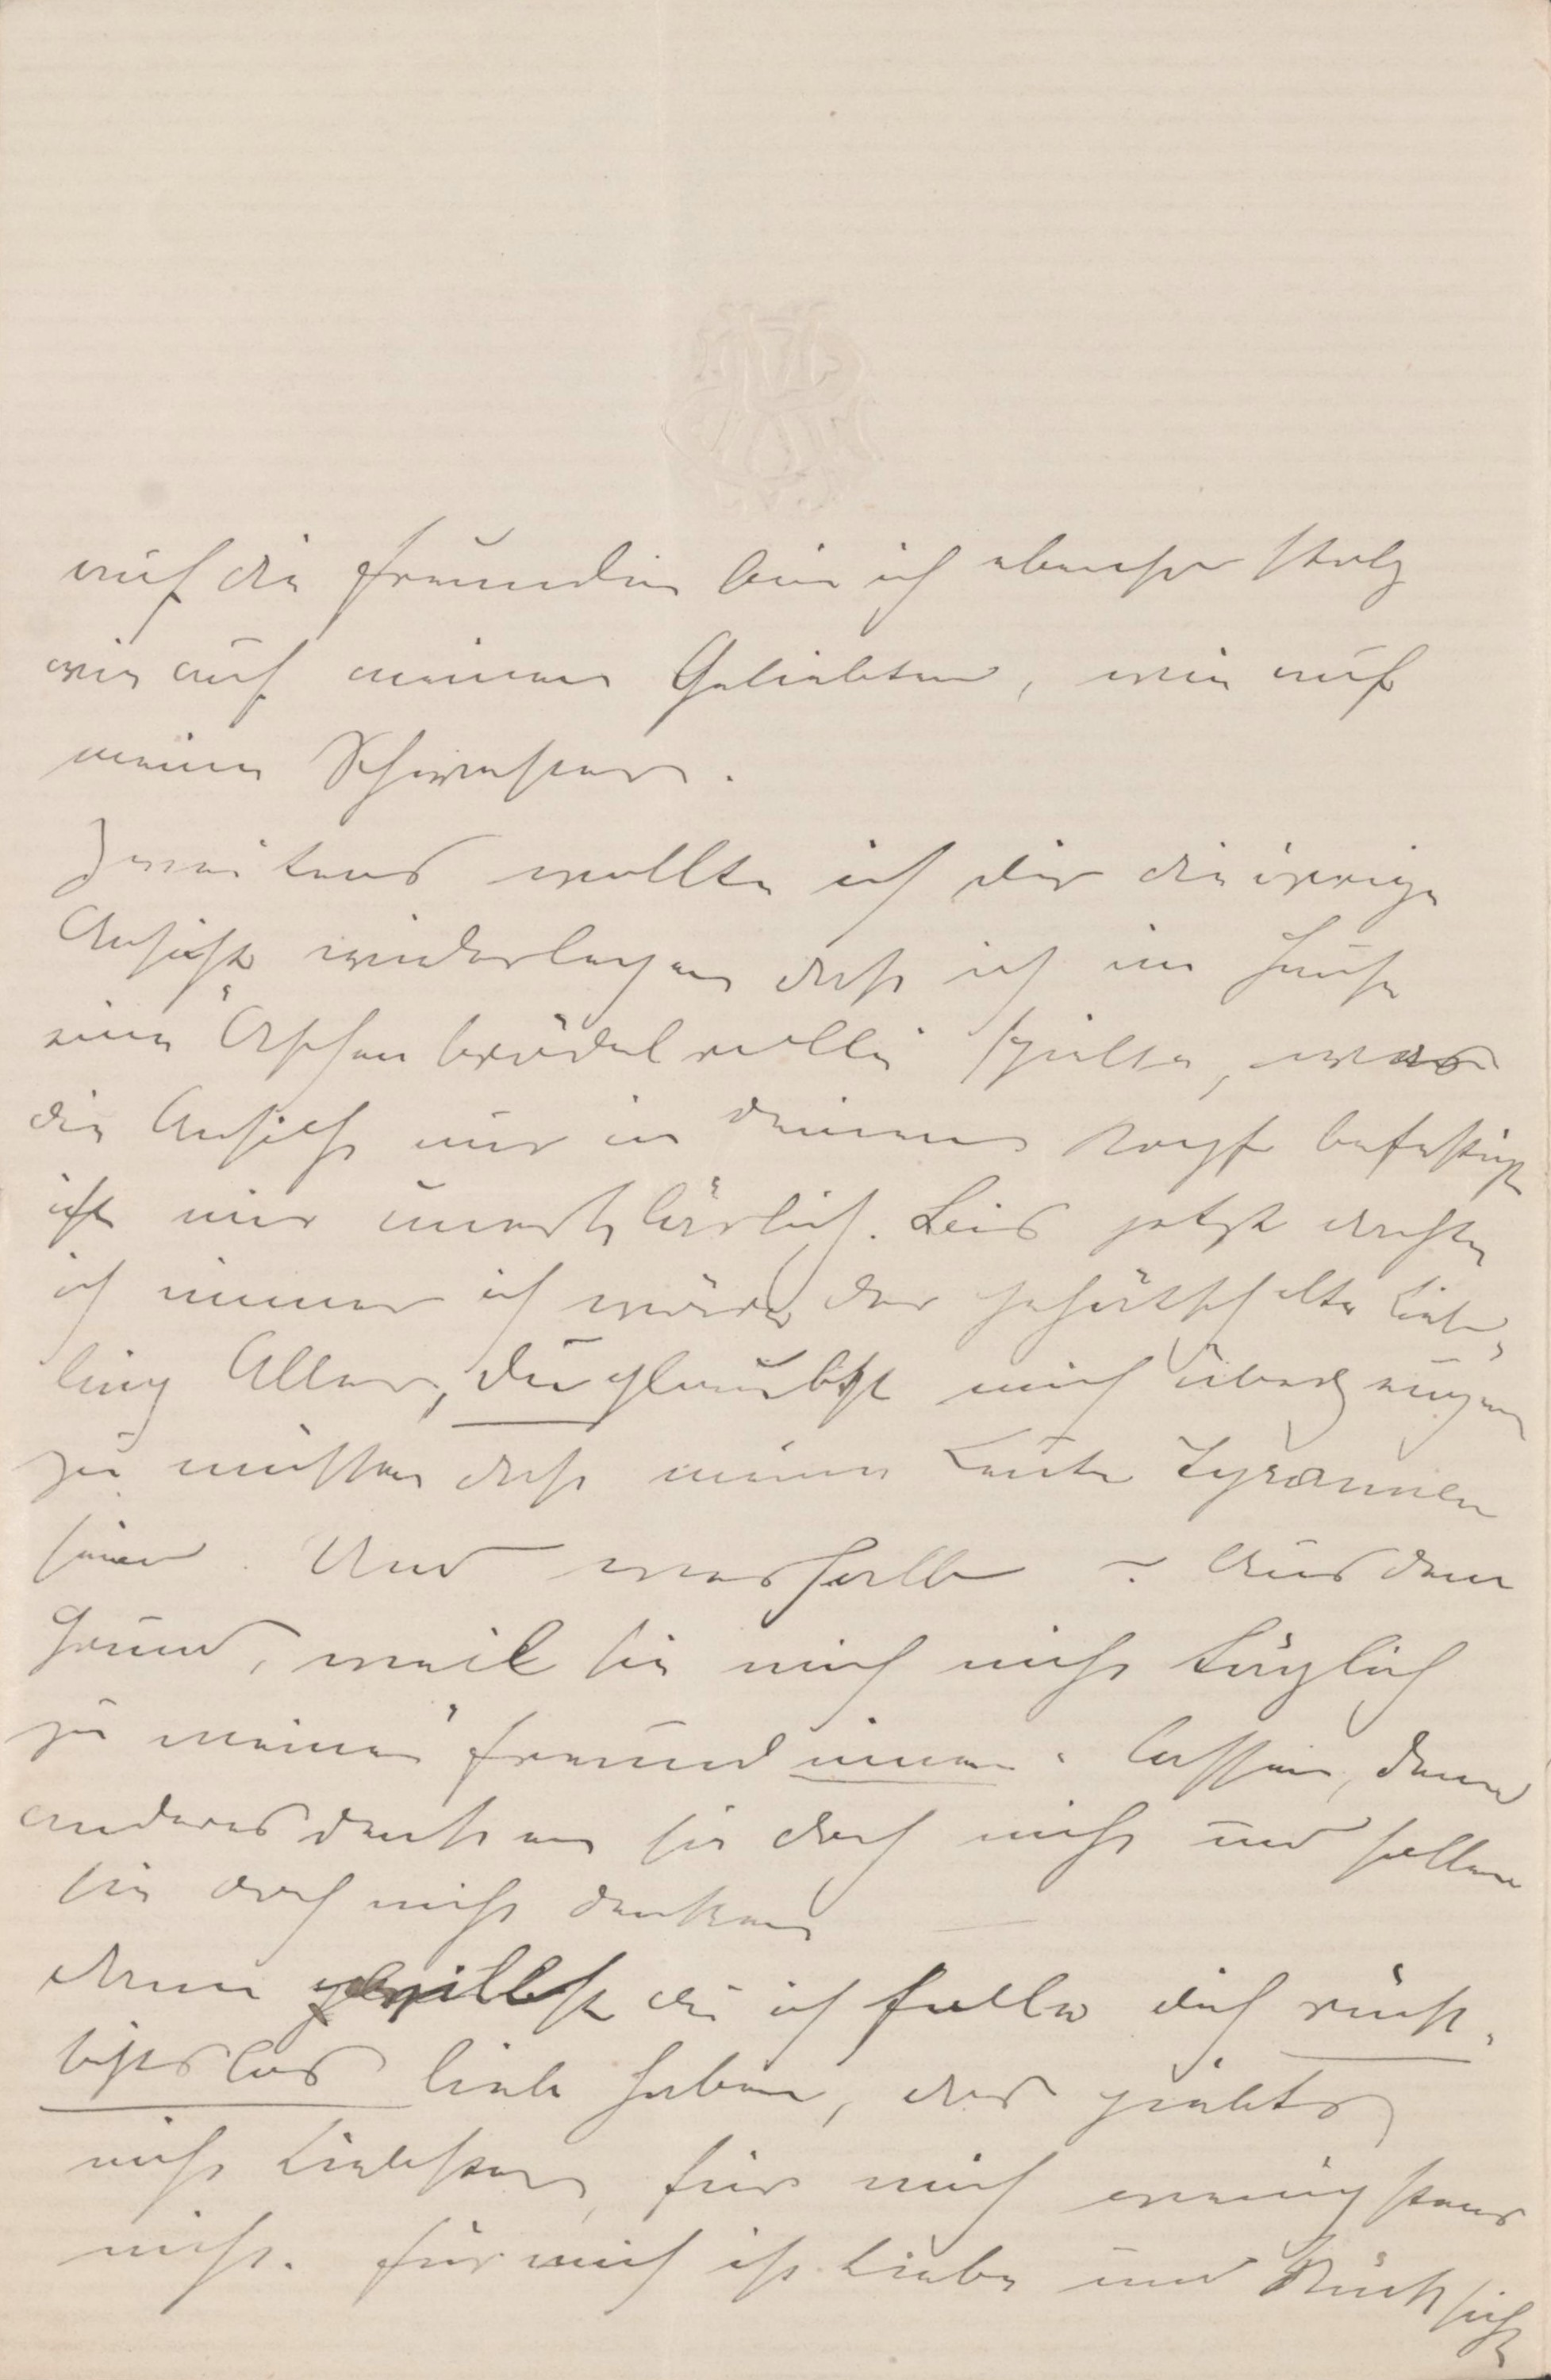 auf die Freundin bin ich ebenso stolz
wie auf meinen Geliebten, wie auf
meine Schwestern.
Zweitens wollte ich dir die irrige
Ansicht widerlegen dass ich im Hause
eine Aschenbrödelrolle spielte, was
die Ansicht nur in deinem Kopf befestigt
ist mir unerklärlich. Bis jetzt dachte
ich immer ich wäre der gehätschelte Lieb-
ling Aller, du glaubst mich überzeugen
zu müssen dass meine Leute Tyrannen
seien. Und weshalb? Aus dem
Grund, weil sie mich nicht täglich
zu meinen "Freundinnen" lassen, denn
anderes denken sie doch nicht und sollen
sie doch nicht denken
dann willst du ich solle dich rück-
sichtslos lieb haben, das giebts
nicht Liebster, für mich wenigstens
nicht. Für mich ist Liebe und Rücksicht